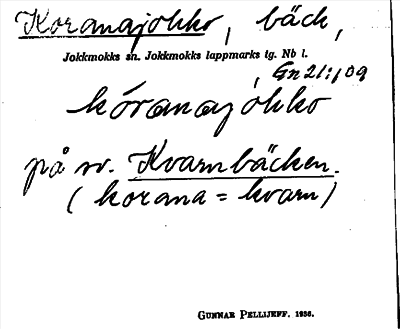 Koranajokko, bäck,
Jokkmokks sn. Jokkmokks lappmarks tg. Nb l.
, Gn21:109
kóranajókko
på sv. Kvarnbäcken.
(korana = kvarn)
GUNNAR PELLIJEFF. 1936.